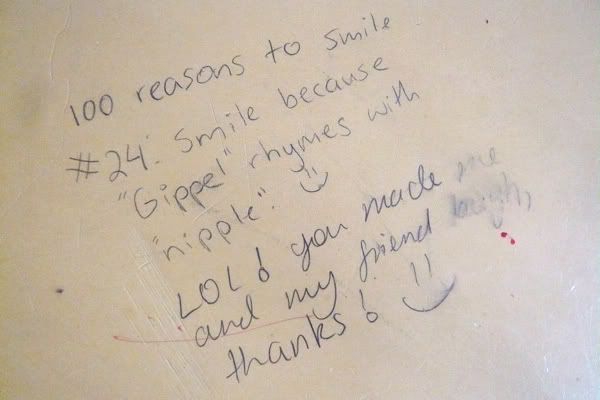 100 reasons to smile
#24: Smile because
"Gippel" rhymes with
"nipple". :)
LOL! you made me
and my friend laugh,
thanks! :)